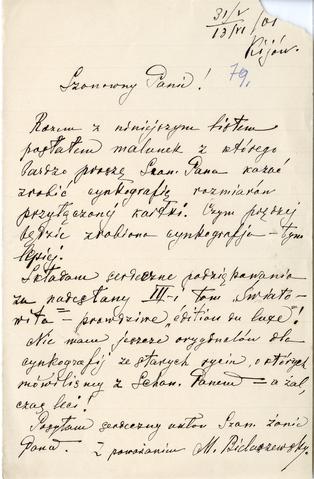 31/V
13/VI /01
Kijów.
79.
Szanowny Panie!
Razem z niniejszym listem
posłałem malunek z którego
bardzo proszę Szan. Pana kazać
zrobić cynkografię rozmiarów
przyłączonej kartki. Czym prędzej
będzie zrobiona cynkografja – tym
lepiej.
Składam serdeczne podziękowania
za nadesłany III-i tom „Świato-
wita" – prawdziwe „edition du luxe!
Nie mam jeszcze oryginałów dla
cynkografij ze starych rycin, o których
mówiliśmy z Schan. Panem – a żal,
czas leci!
Posyłam serdeczny ukłon Szan. żonie
Pana. Z poważaniem M. Bielaszewsky.